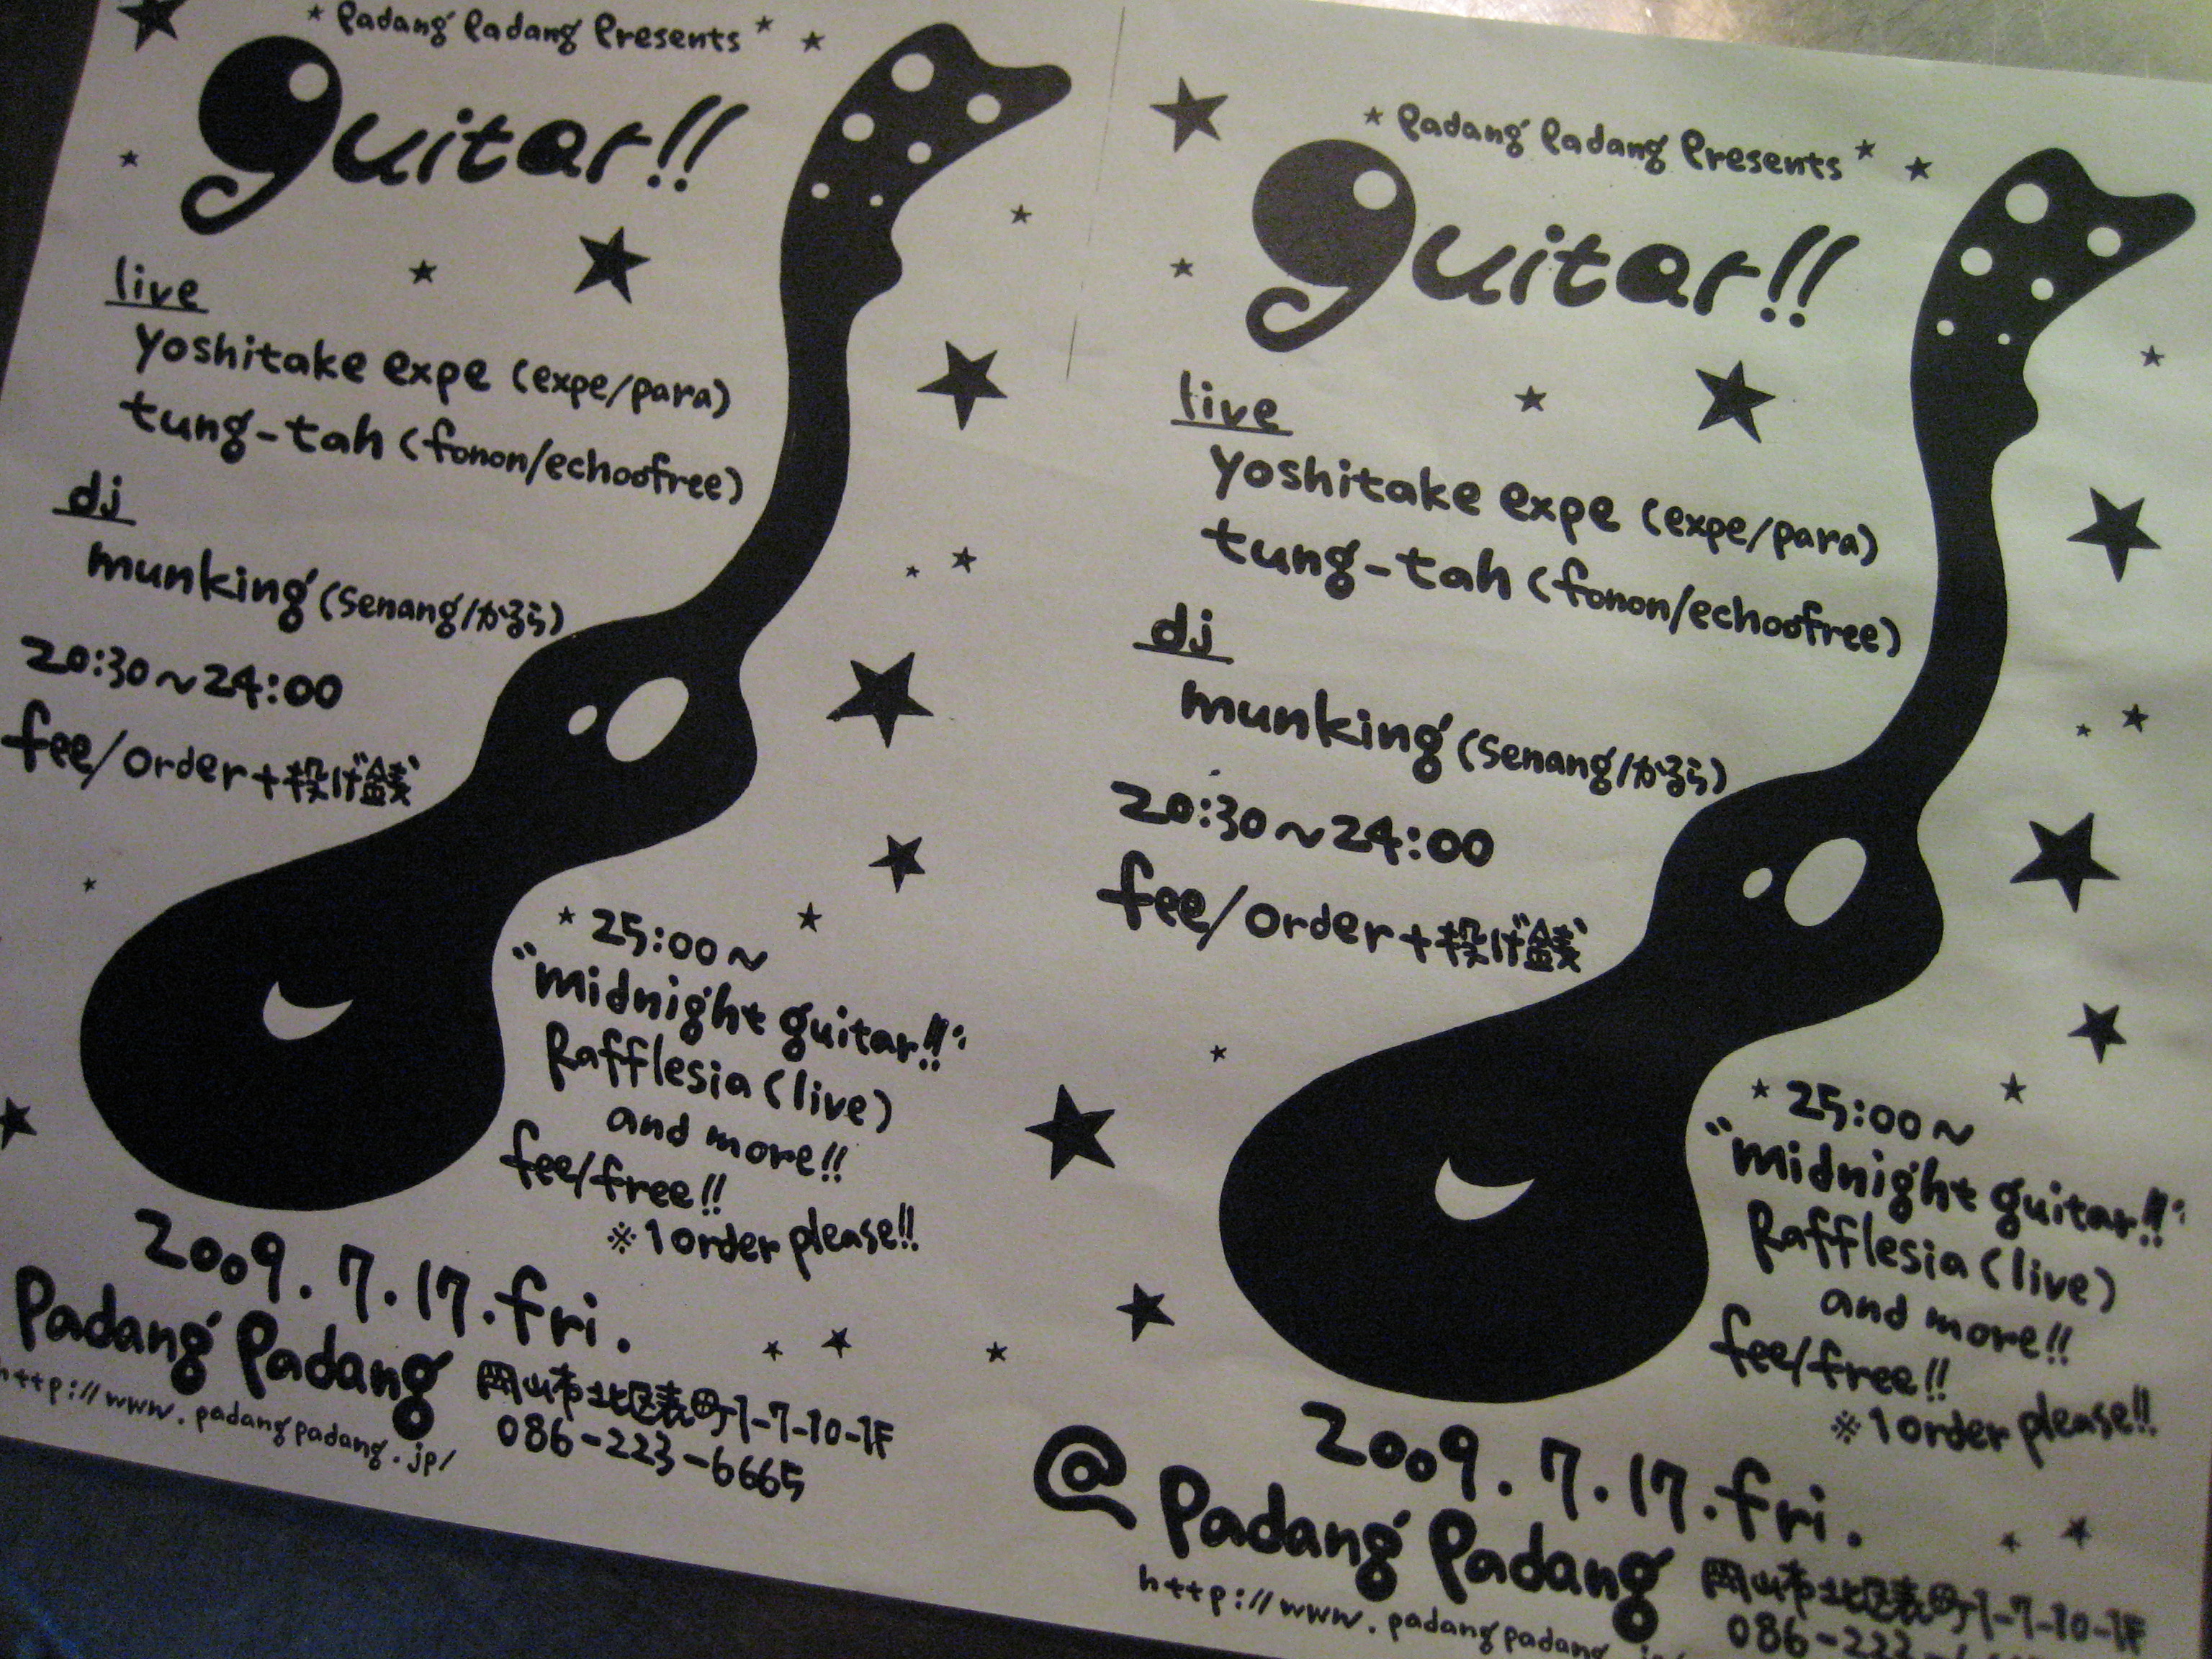 Padang Padang Presents
guitar!!
live
yoshitake expe (expe/para)
tung-tah (fonon/echoofree)
dj
munking (senang/かるら)
20:30〜24:00
fee/order+投げ銭
25:00〜
"midnight guitar!!"
Rafflesia (live)
and more!!
fee/free!!
※1order please!!
2009.7.17.fri.
Padang Padang
岡山市北区表町1-7-10-1F
http://www.padangpadang.jp/
086-223-6665
Padang Padang Presents
guitar!!
live
yoshitake expe (expe/para)
tung-tah (fonon/echoofree)
dj
munking (senang/かるら)
20:30〜24:00
fee/order+投げ銭
25:00〜
"midnight guitar!!"
Rafflesia (live)
and more!!
fee/free!!
※1order please!!
2009.7.17.fri.
@Padang Padang
岡山市北区表町1-7-10-1F
http://www.padangpadang.
086-223-